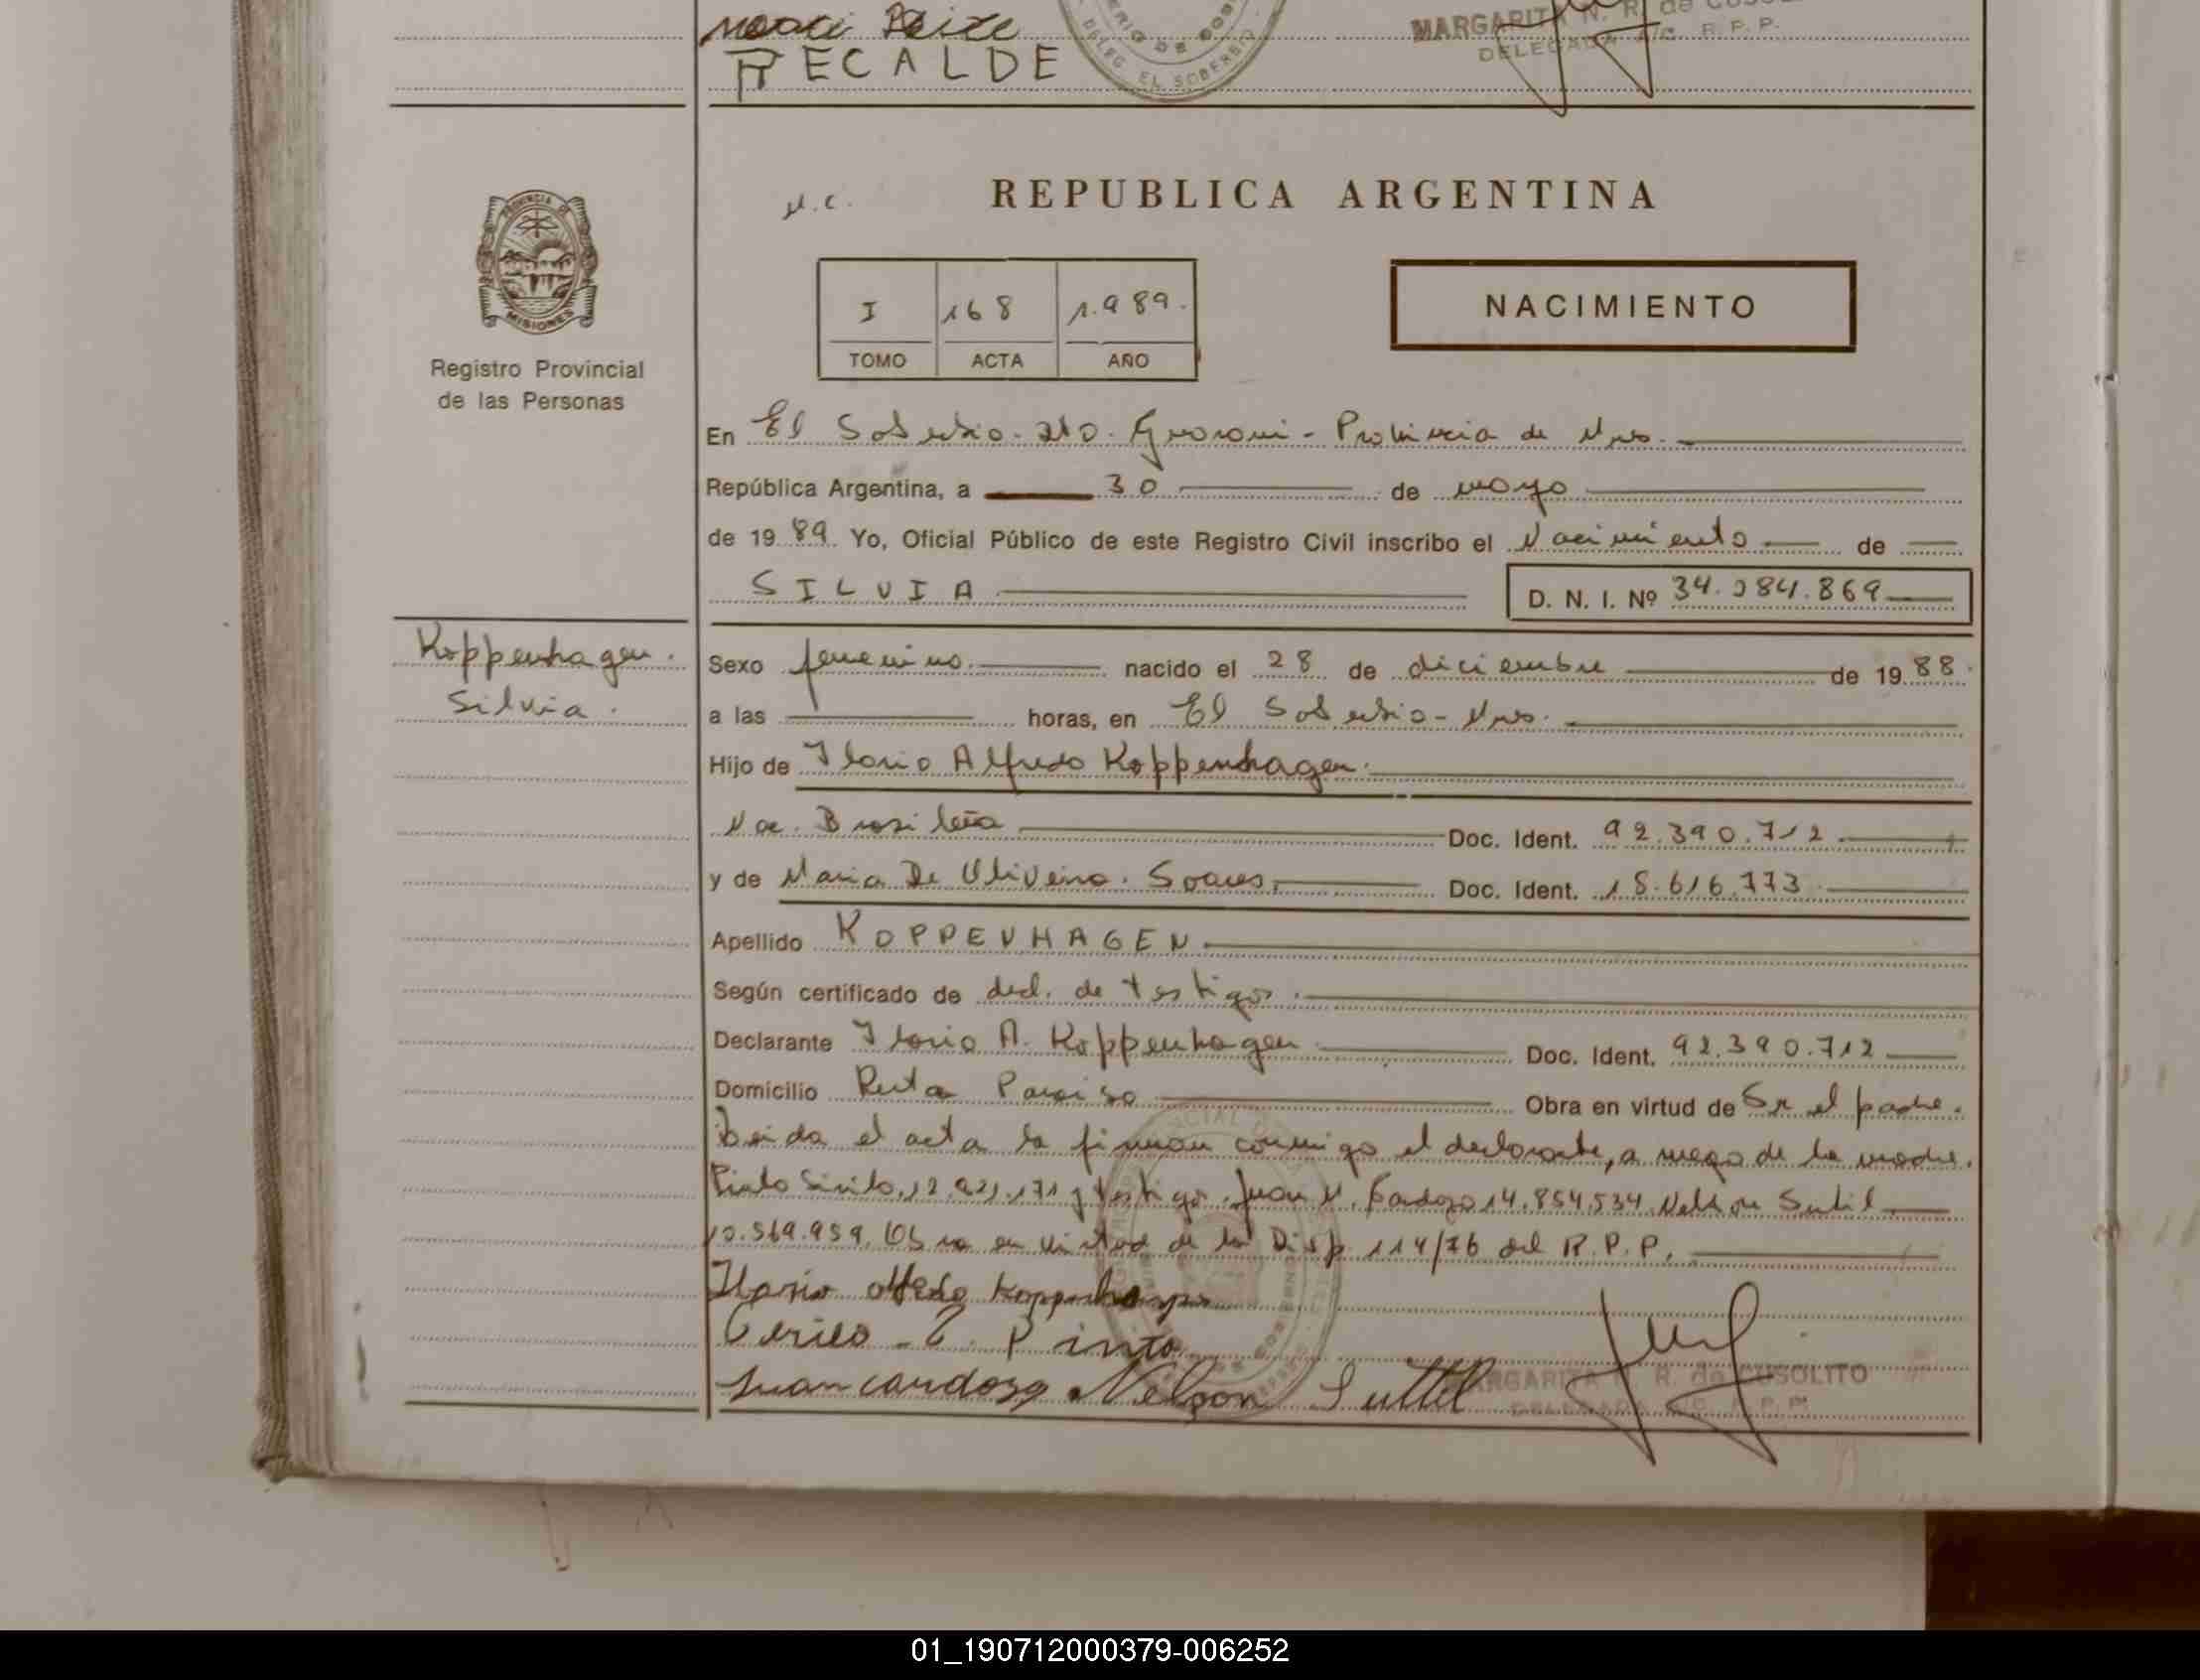 RECALDE
MARGARITA N. R. de
DELEGADA A/c. R. P. P.
DELEG. EL SOBERBIO
PROVINCIA DE
MISIONES
Registro Provincial
de las Personas
N.C.
REPUBLICA ARGENTINA
I 168 1.989.
TOMO ACTA AÑO
NACIMIENTO
En El Soberbio. Dto. Guarani - Provincia de Mnes.
República Argentina, a 30 de mayo
de 1989 Yo, Oficial Público de este Registro Civil inscribo el Nacimiento de
SILVIA D. N. I. Nº 34.084.869
Koppenhagen.
Silvia.
Sexo femenino. nacido el 28 de diciembre de 1988.
a las horas, en El Soberbio - Mnes.
Hijo de Ilario Alfredo Koppenhagen.
Nac. Brasileña Doc. Ident. 92.390.712
y de Maria De Oliveira. Soares. Doc. Ident. 18.616.773
Apellido KOPPENHAGEN
Según certificado de decl. de testigos.
Declarante Ilario A. Koppenhagen Doc. Ident. 92.390.712
Domicilio Ruta Paraiso Obra en virtud de Ser el padre.
Leida el acta la firman conmigo el declarante, a ruego de la madre.
Pinto 12.921.171 y testigos. Juan M. Cardozo 14.854.534 Nelson Sutil
10.569.959. en virtud de la Disp 114/76 del R.P.P.
Ilario Alfredo Koppenhagen
Pinto
Juan Cardozo Nelson Suttil
MARGARITA N. R. de CUSOLITO
DELEGADA A/C. R. P. P.
01_190712000379-006252